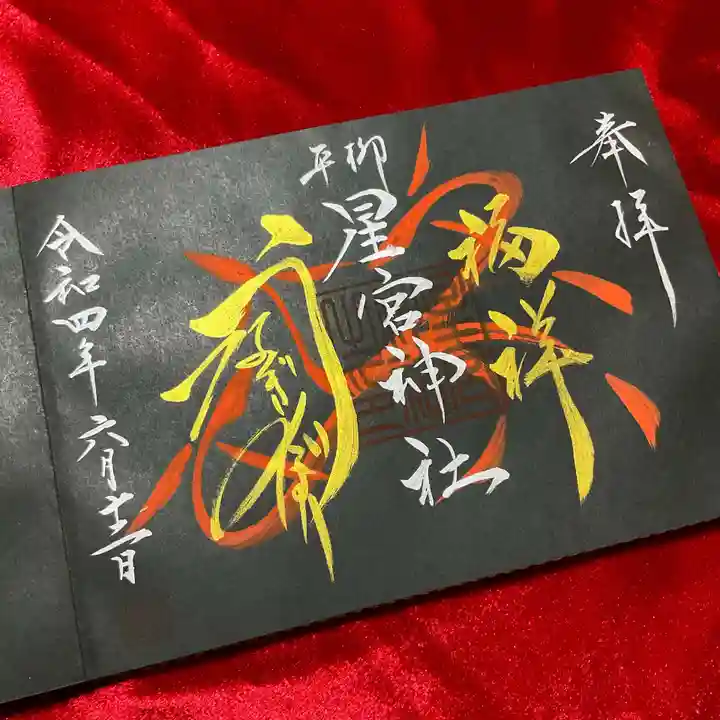 奉拝
福祥
平柳
星宮神社
令和四年六月